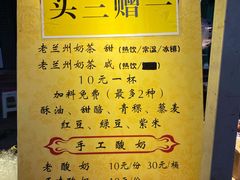 买三赠一
老兰州奶茶 甜(热饮/常温/冰镇)
老兰州奶茶 咸(热饮/
10元一杯
加料免费(最多2种)
酥油、甜醅、青稞、藜麦
红豆、绿豆、紫米
手工酸奶
老酸奶 10元/份 30元/桶